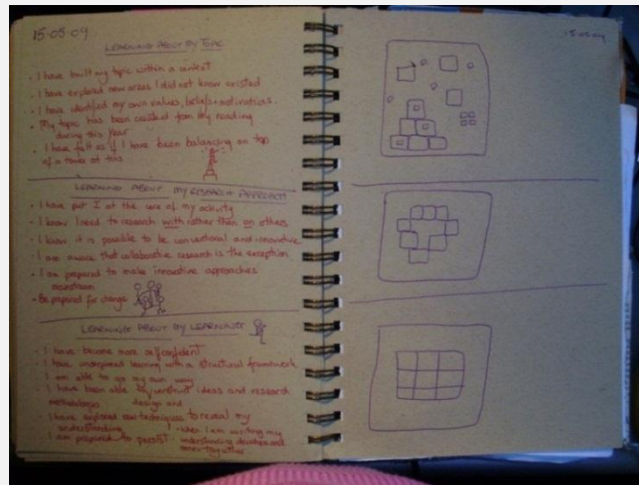 15.05.09
LEARNING ABOUT MY TOPIC
· I have built my topic within a context
· I have explored new areas I did not know existed
· I have identified my own values, beliefs + motivations.
· My topic has been created from my reading
during this year
· I have felt as if I have been balancing on top
of a tower at times
LEARNING ABOUT MY RESEARCH APPROACH
· I have put I at the core of my activity
· I know I need to research with rather than on others
· I know it is possible to be conventional and innovative
· I am aware that collaborative research is the exception
· I am prepared to make innovative approaches
mainstream
· Be prepared for change
LEARNING ABOUT MY LEARNING
· I have become more self confident
· I have underpinned learning with a structural framework
I am able to go my own way
· I have been able to ideas and research
design and
· I have explored new techniques to reveal my
understanding
· when I am writing my
I am prepared to persist
understanding develops and
comes together
15.05.09